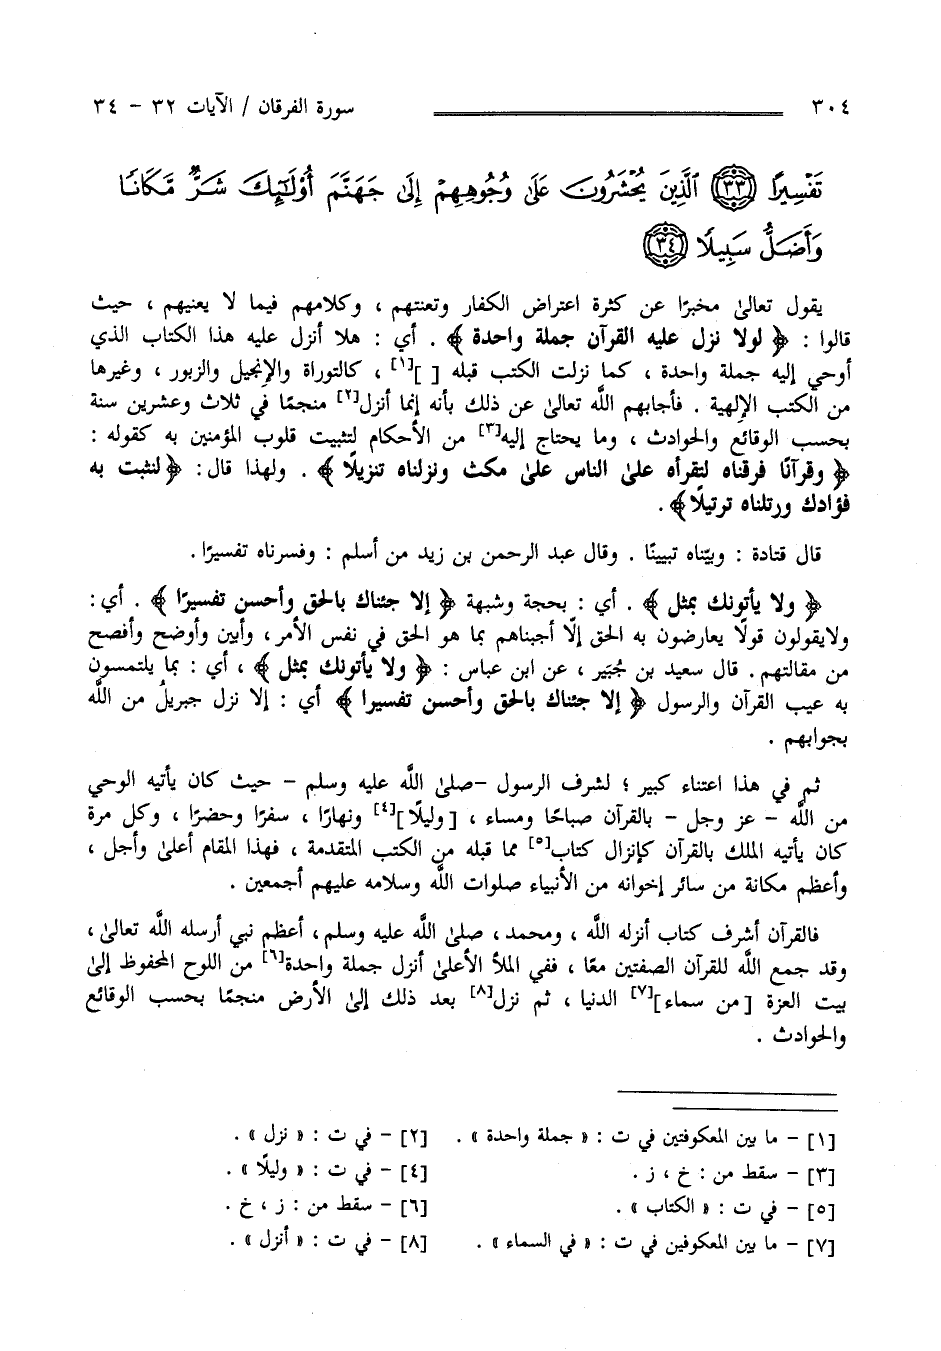 ٣٠٤ سورة الفرقان / الآيات ٣٢ - ٣٤
تَفْسِيرًا ٣٣ ٱلَّذِينَ يُحْشَرُونَ عَلَىٰ وُجُوهِهِمْ إِلَىٰ جَهَنَّمَ أُوْلَٰٓئِكَ شَرٌّ مَّكَانًا
وَأَضَلُّ سَبِيلًا ٣٤
يقول تعالىٰ مخبرًا عن كثرة اعتراض الكفار وتعنتهم ، وكلامهم فيما لا يعنيهم ، حيث
قالوا : ﴿ لولا نزل عليه القرآن جملة واحدة ﴾ . أي : هلا أنزل عليه هذا الكتاب الذي
أوحي إليه جملة واحدة ، كما نزلت الكتب قبله [ ][١] ، كالتوراة والإنجيل والزبور ، وغيرها
من الكتب الإلهية . فأجابهم اللَّه تعالىٰ عن ذلك بأنه إنما أنزل[٢] منجمًا في ثلاث وعشرين سنة
بحسب الوقائع والحوادث ، وما يحتاج إليه[٣] من الأحكام لتثبيت قلوب المؤمنين به كقوله :
﴿ وقرآنًا فرقناه لتقرأه علىٰ الناس علىٰ مكث ونزلناه تنزيلًا ﴾ . ولهذا قال: ﴿ لنثبت به
فؤادك ورتلناه ترتيلًا ﴾ .
قال قتادة : وبيّناه تبيينًا . وقال عبد الرحمن بن زيد من أسلم : وفسرناه تفسيرًا .
﴿ ولا يأتونك بمثل ﴾ . أي : بحجة وشبهة ﴿ إلا جئناك بالحق وأحسن تفسيرًا ﴾ . أي:
ولايقولون قولًا يعارضون به الحق إلّا أجبناهم بما هو الحق في نفس الأمر ، وأبين وأوضح وأفصح
من مقالتهم . قال سعيد بن جُبَير ، عن ابن عباس : ﴿ ولا يأتونك بمثل ﴾ ، أي : بما يلتمسون
به عيب القرآن والرسول ﴿ إلا جئناك بالحق وأحسن تفسيرا ﴾ أي : إلا نزل جبريلُ من اللَّه
بجوابهم .
ثم في هذا اعتناء كبير ؛ لشرف الرسول -صلىٰ اللَّه عليه وسلم - حيث كان يأتيه الوحي
من اللَّه - عز وجل - بالقرآن صباحًا ومساء ، [وليلًا][٤] ونهارًا ، سفرًا وحضرًا ، وكل مرة
كان يأتيه الملك بالقرآن كإنزال كتاب[٥] مما قبله من الكتب المتقدمة ، فهذا المقام أعلىٰ وأجل ،
وأعظم مكانة من سائر إخوانه من الأنبياء صلوات اللَّه وسلامه عليهم أجمعين .
فالقرآن أشرف كتاب أنزله اللَّه ، ومحمد ، صلىٰ اللَّه عليه وسلم ، أعظم نبي أرسله اللَّه تعالىٰ ،
وقد جمع اللَّه للقرآن الصفتين معًا ، ففي الملأ الأعلىٰ أنزل جملة واحدة[٦] من اللوح المحفوظ إلىٰ
بيت العزة [من سماء][٧] الدنيا ، ثم نزل[٨] بعد ذلك إلىٰ الأرض منجمًا بحسب الوقائع
والحوادث .
[١] - ما بين المعكوفتين في ت : « جملة واحدة » . [٢] - في ت : « نزل » .
[٣] - سقط من : خ ، ز . [٤] - في ت : « وليلًا » .
[٥] - في ت : « الكتاب » . [٦] - سقط من : ز ، خ .
[٧] - ما بين المعكوفين في ت : « في السماء » . [٨] - في ت : « أنزل » .